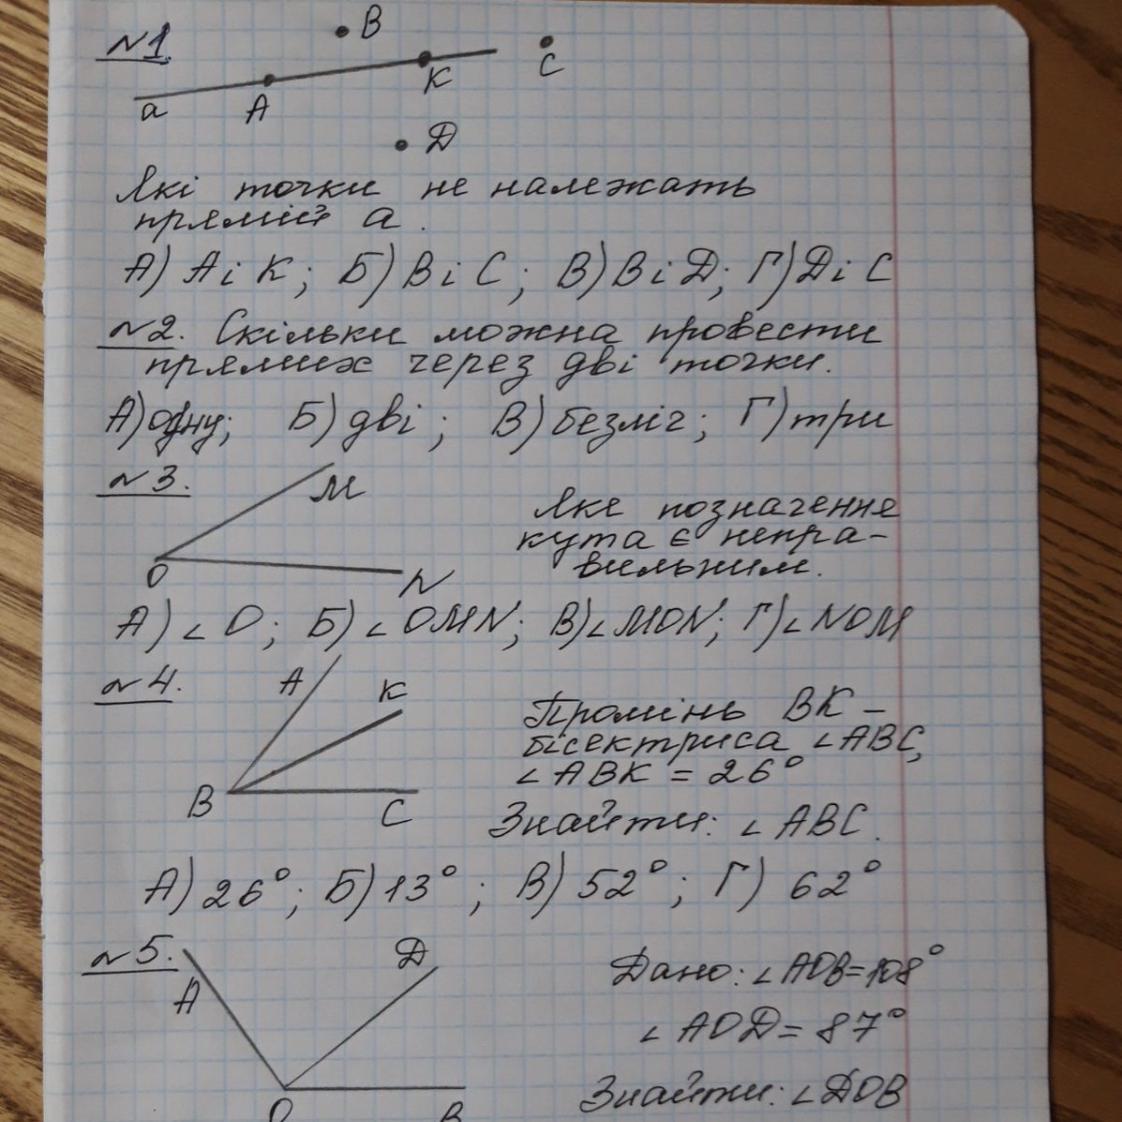 №1
В
К
С
а
А
Д
Які точки не належать
прямій а.
А) А і К; Б) В і С; В) В і Д; Г) Д і С
№2. Скільки можна провести
прямих через дві точки.
А) одну; Б) дві; В) безліч; Г) три
№3.
М
О
N
Яке позначення
кута є непра-
вильним.
А) ∠О; Б) ∠ОМN; В) ∠МОN; Г) ∠NОМ
№4.
А
К
В
С
Промінь ВК –
бісектриса ∠АВС,
∠АВК = 26°
Знайти: ∠АВС.
А) 26°; Б) 13°; В) 52°; Г) 62°
№5.
А
Д
О
В
Дано: ∠АОВ = 108°
∠АОД = 87°
Знайти: ∠ДОВ